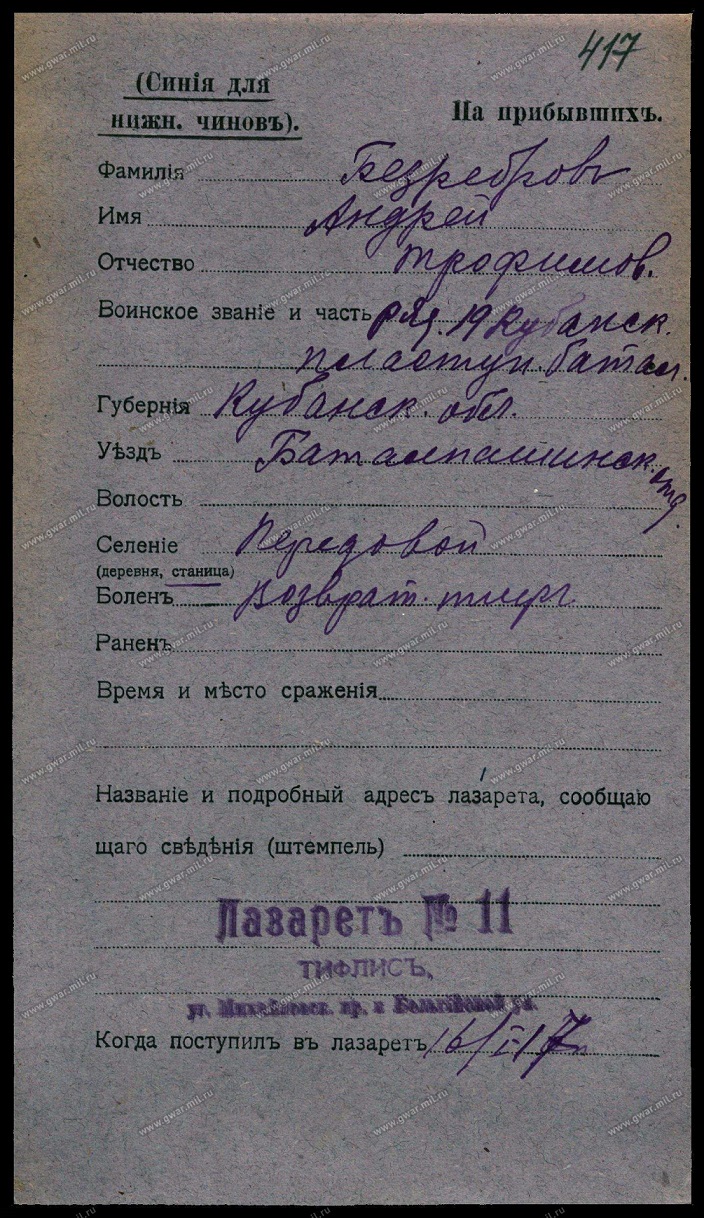 417
(Синія для
нижн. чиновъ).
На прибывшихъ.
Фамилія Безребровъ
Имя Андрей
Отчество Трофимов.
Воинское званіе и часть ряд. 19 Кубанск.
пластун. батал.
Губернія Кубанск. обл.
Уѣздъ Баталпашинск. отд.
Волость
Селеніе Передовой
(деревня, станица)
Боленъ возврат. тиф
Раненъ
Время и мѣсто сраженія
Названіе и подробный адресъ лазарета, сообщаю
щаго свѣдѣнія (штемпель)
Лазаретъ № 11
ТИФЛИСЪ,
уг. Михайловск. пр. и Бельгійской ул.
Когда поступилъ въ лазаретъ 16/I-17
www.gwar.mil.ru